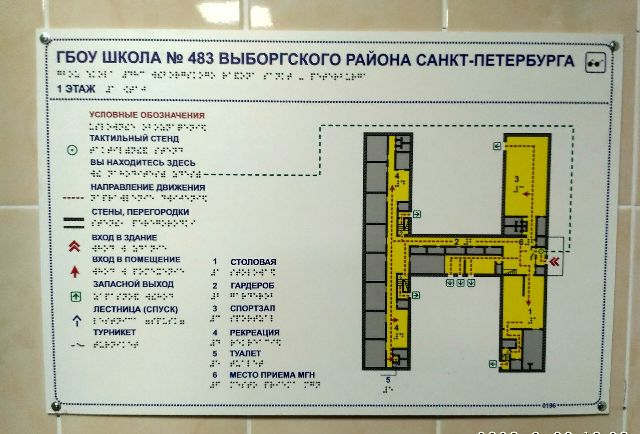 ГБОУ ШКОЛА № 483 ВЫБОРГСКОГО РАЙОНА САНКТ-ПЕТЕРБУРГА
1 ЭТАЖ
УСЛОВНЫЕ ОБОЗНАЧЕНИЯ
ТАКТИЛЬНЫЙ СТЕНД
ВЫ НАХОДИТЕСЬ ЗДЕСЬ
НАПРАВЛЕНИЕ ДВИЖЕНИЯ
СТЕНЫ, ПЕРЕГОРОДКИ
ВХОД В ЗДАНИЕ
ВХОД В ПОМЕЩЕНИЕ
ЗАПАСНОЙ ВЫХОД
ЛЕСТНИЦА (СПУСК)
ТУРНИКЕТ
1 СТОЛОВАЯ
2 ГАРДЕРОБ
3 СПОРТЗАЛ
4 РЕКРЕАЦИЯ
5 ТУАЛЕТ
6 МЕСТО ПРИЕМА МГН
4
3
2
6
1
4
5
0196